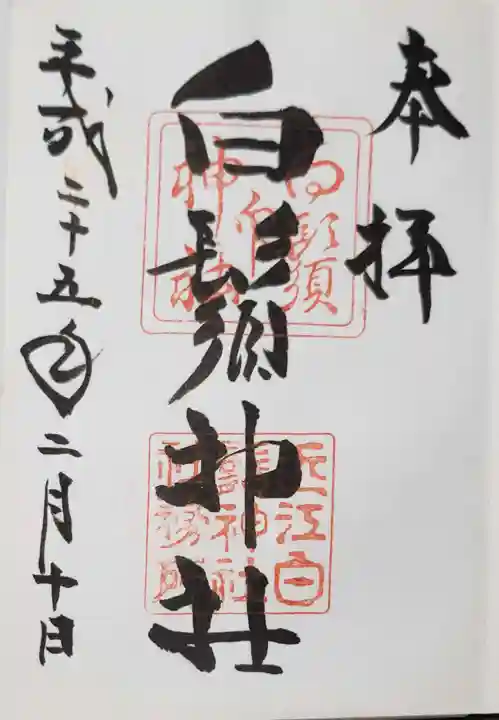 奉拝
白鬚神社
近江白鬚神社社務所
平成二十五年二月十日